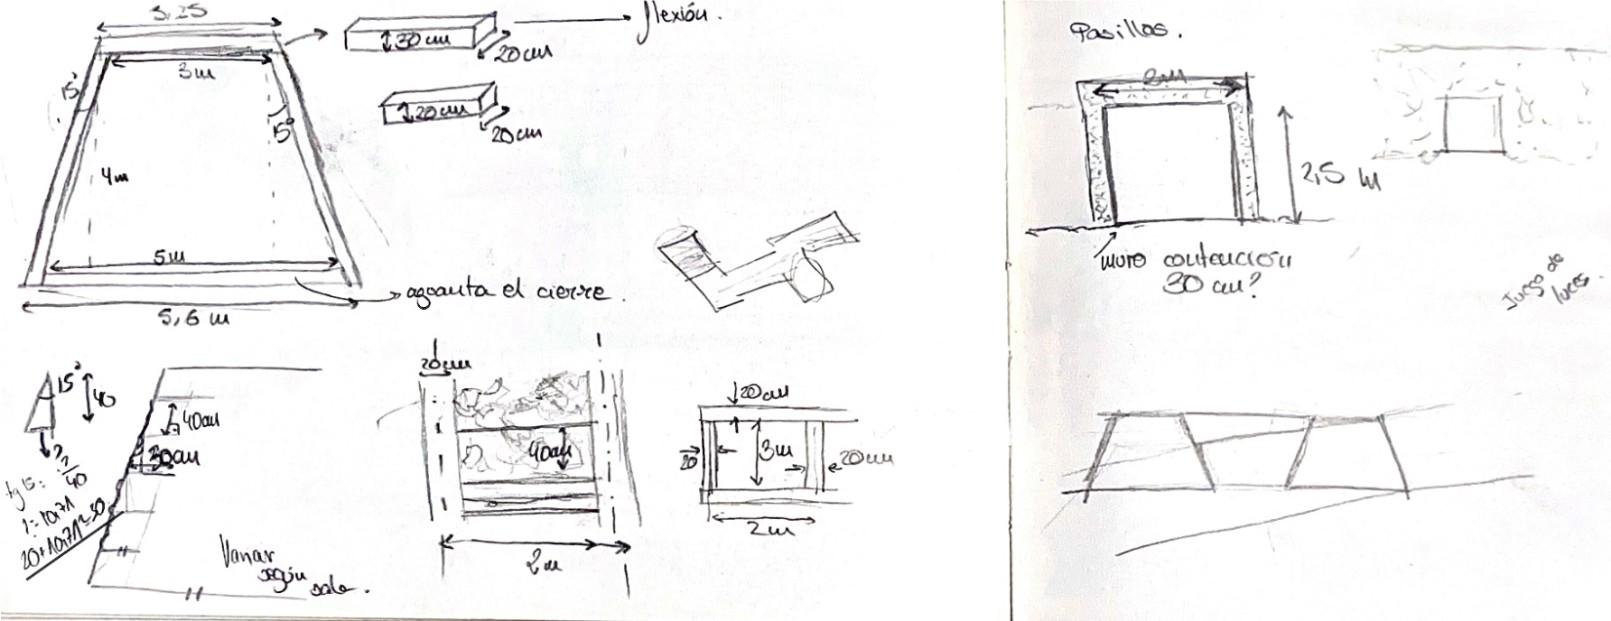 3,25
30cm
20cm
flexión.
3m
15°
20cm
20cm
15°
4m
5m
aguanta el cierre.
5,6 m
15°
40
40cm
30cm
?
tg 15 = ?/40
? = 10,71
20+10,71≈30
Variar
según
sale.
20cm
40cm
2m
20cm
20
3m
20cm
2m
Pasillos.
2m
2,5 m
muro contención
30 cm?
Juego de
luces.